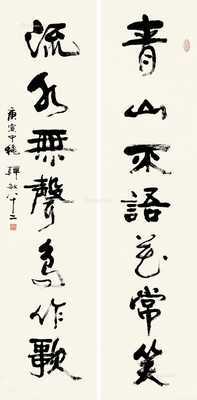 青山不語花常笑
流水無聲鳥作歌
庚寅中秋